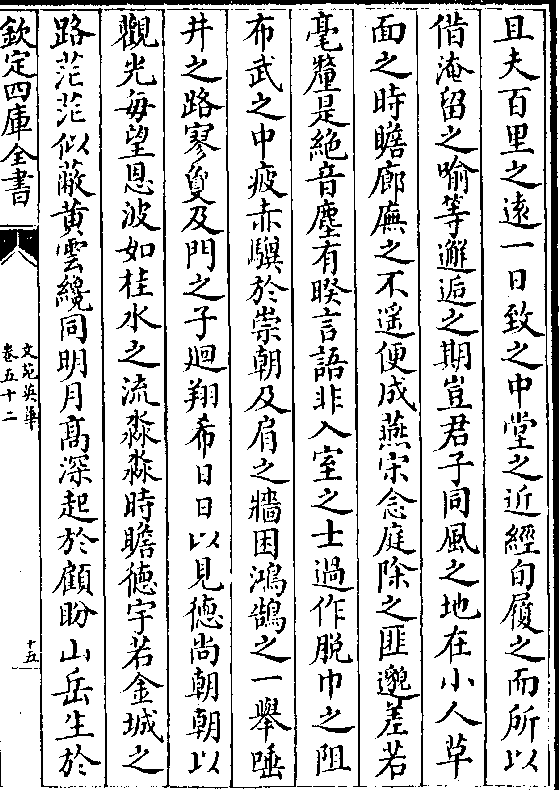 且夫百里之遠一日致之中堂之近經旬履之而所以
借淹留之喻等邂逅之期豈君子同風之地在小人草
面之時瞻廊廡之不遥便成燕宋念庭除之匪邈差若
毫釐是絶音塵有暌言語非入室之士過作脱巾之阻
布武之中疲赤驥於崇朝及肩之牆困鴻鵠之一舉唾
井之路寥敻及門之子迴翔希日日以見德尚朝朝以
觀光每望恩波如桂水之流淼淼時瞻德宇若金城之
路茫茫似蔽黄雲纔同明月髙深起於顧盼山岳生於
欽定四庫全書
文苑英華
卷五十二
十五